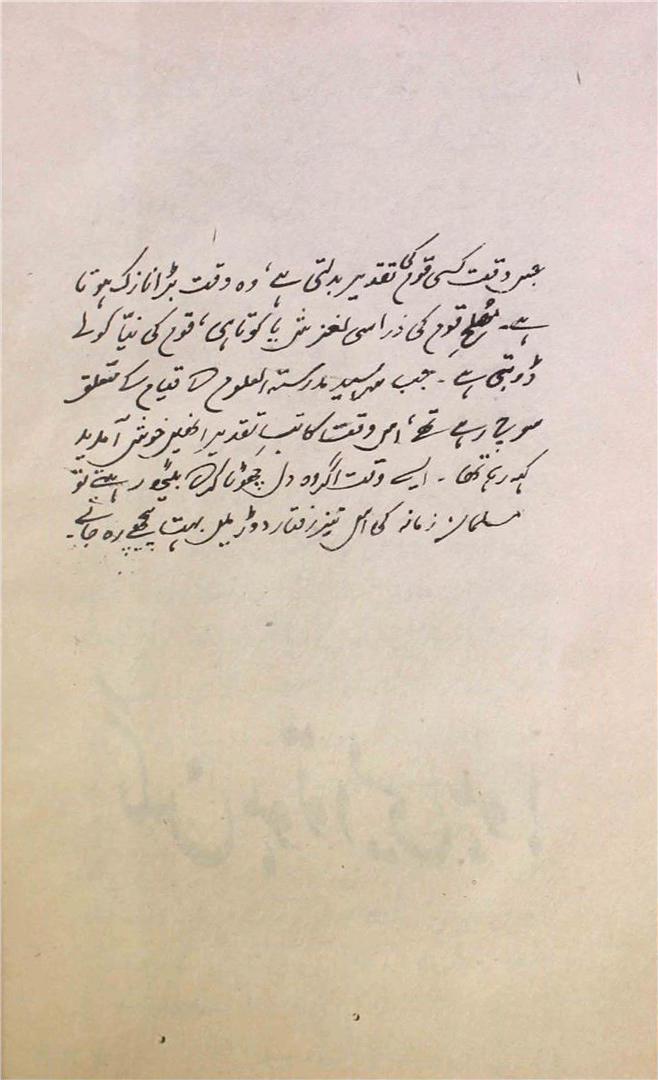 جس وقت کسی قوم کی تقدیر بدلتی ہے، وہ وقت بڑا نازک ہوتا
ہے۔ مصلحِ قوم کی ذرا سی لغزش یا کوتاہی، قوم کی نیّا کو لے
ڈوبتی ہے۔ جب سرسید مدرستہ العلوم کے قیام کے متعلق
سوچ رہے تھے، اس وقت کاتبِ تقدیر انھیں خوش آمدید
کہہ رہا تھا۔ ایسے وقت اگر وہ دل چھوٹا کر کے بیٹھ رہتے تو
مسلمان زمانہ کی اس تیز رفتار دوڑ میں بہت پیچھے رہ جاتے۔